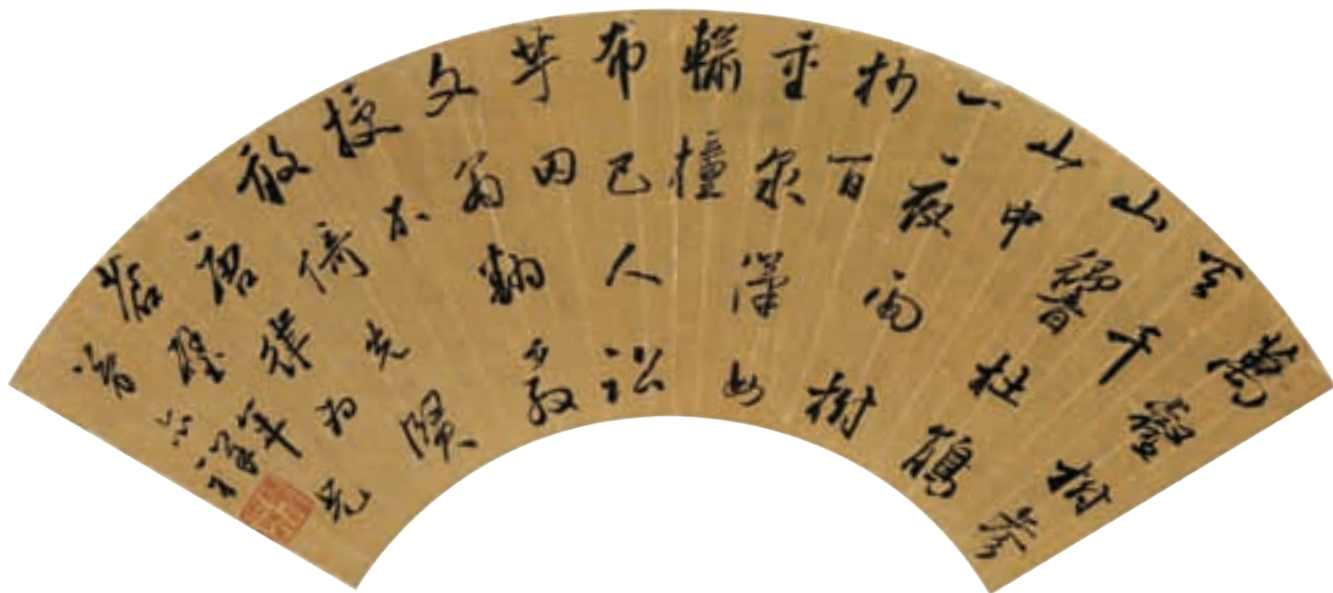 萬壑樹參
天千
山響杜鵑
山中
一夜雨樹
杪百
重泉漢女
輸橦
布巴人訟
芋田
文翁翻教
授不
敢倚先賢
唐律為
璧年兄
六祥